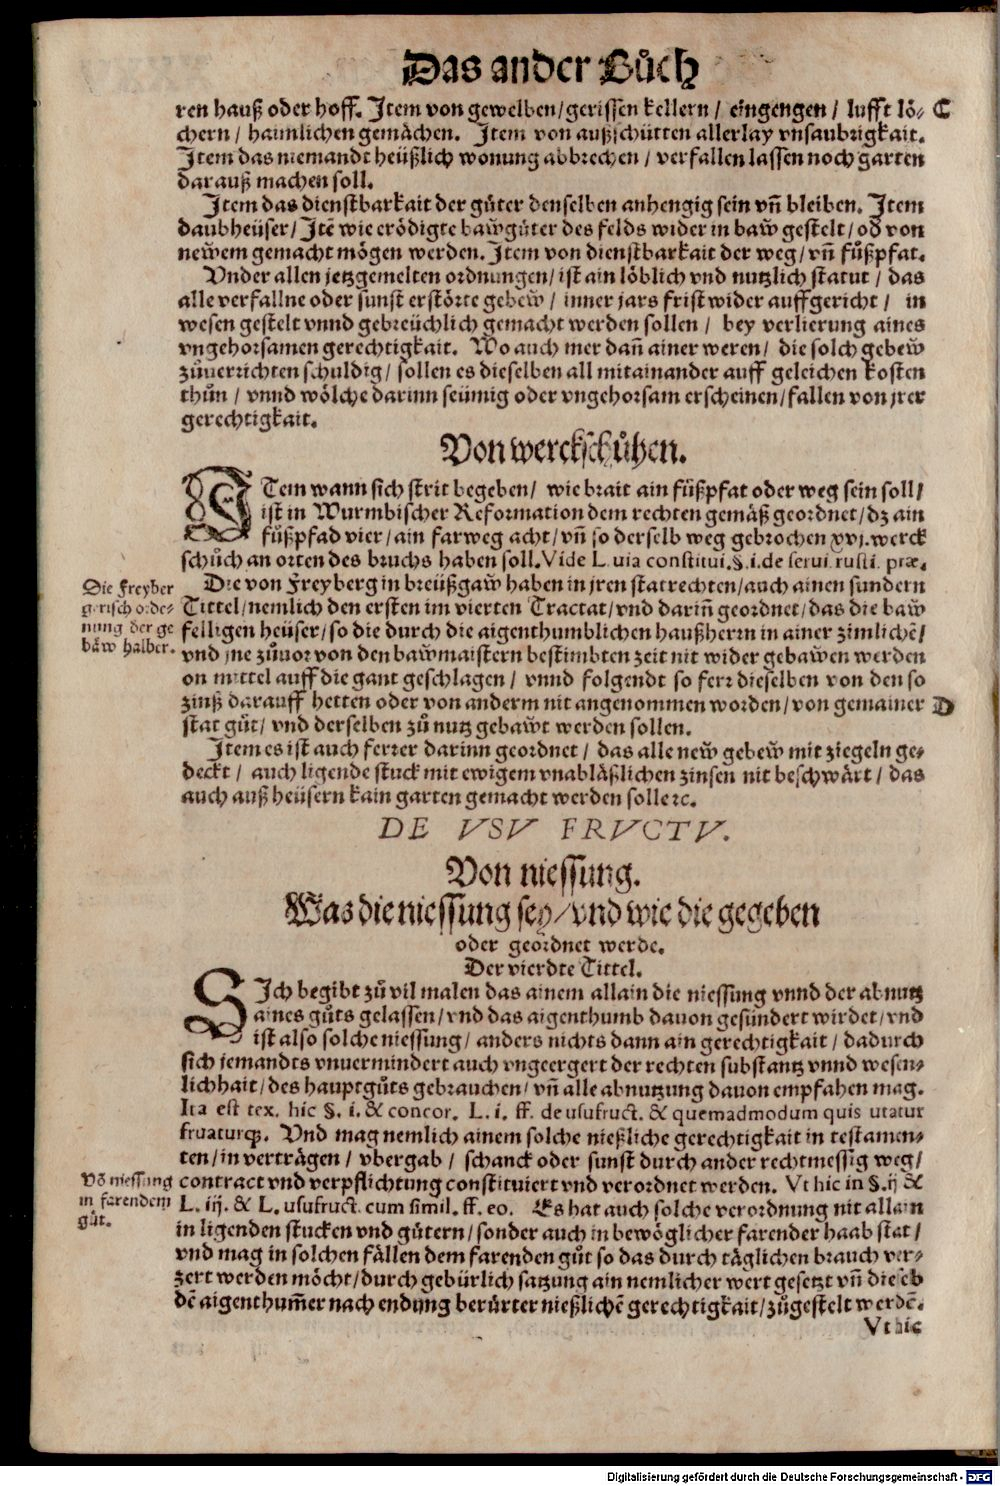 Das ander Bůch
ren hauß oder hoff. Item von gewelben / gerissen kellern / eingengen / lufft lö- C
chern / haimlichen gemächen. Item von außschütten allerlay vnsaubrigkait.
Item das niemandt heüßlich wonung abbrechen / verfallen lassen noch garten
darauß machen soll.
Item das dienstbarkait der güter denselben anhengig sein vñ bleiben. Item
daubheüser / Itē wie erödigte baẘgüter des felds wider in baẘ gestelt / od̄ von
neẘem gemacht mögen werden. Item von dienstbarkait der weg / vñ fůßpfat.
Vnder allen jetzgemelten ordnungen / ist ain löblich vnd nutzlich statut / das
alle verfallne oder sunst erstörte gebeẘ / inner jars frist wider auffgericht / in
wesen gestelt vnnd gebreüchlich gemacht werden sollen / bey verlierung aines
vngehorsamen gerechtigkait. Wo auch mer dañ ainer weren / die solch gebeẘ
zůuerrichten schuldig / sollen es dieselben all mitainander auff geleichen kosten
thůn / vnnd wölche darinn seümig oder vngehorsam erscheinen / fallen von jrer
gerechtigkait.
Von werckschůhen.
ITem wann sich strit begeben / wie brait ain fůßpfat oder weg sein soll /
ist in Wurmbischer Reformation dem rechten gemäß geordnet / dz ain
fůßpfad vier / ain farweg acht / vñ so derselb weg gebrochen xvj. werck
schůch an orten des bruchs haben soll. Vide L. uia constitui. §. i. de serui. rusti. præ.
Die Freyber
gerisch orde-
nung der ge
bäw halber.
Die von Freyberg in breüßgaẘ haben in jren statrechten / auch ainen sundern
Tittel / nemlich den ersten im vierten Tractat / vnd darin̄ geordnet / das die baẘ
felligen heüser / so die durch die aigenthumblichen haußherrn in ainer zimlichē /
vnd jne zůuor von den baẘmaistern bestimbten zeit nit wider gebaẘen werden
on mittel auff die gant geschlagen / vnnd folgendt so ferr dieselben von den so
zinß darauff hetten oder von anderm nit angenommen worden / von gemainer D
stat gůt / vnd derselben zů nutz gebaẘt werden sollen.
Item es ist auch ferrer darinn geordnet / das alle neẘ gebeẘ mit ziegeln ge-
deckt / auch ligende stuck mit ewigem vnabläßlichen zinsen nit beschwärt / das
auch auß heüsern kain garten gemacht werden solle ꝛc.
DE VSV FRVCTV.
Von niessung.
Was die niessung sey / vnd wie die gegeben
oder geordnet werde.
Der vierdte Tittel.
SIch begibt zů vil malen das ainem allain die niessung vnnd der abnutz
aines gůts gelassen / vnd das aigenthumb dauon gesündert wirdet / vnd
ist also solche niessung / anders nichts dann ain gerechtigkait / dadurch
sich jemandts vnuermindert auch vngeergert der rechten substantz vnnd wesen-
lichhait / des hauptgůts gebrauchen / vñ alle abnutzung dauon empfahen mag.
Ita est tex. hic §. i. & concor. L. i. ff. de usufruct. & quemadmodum quis utatur
fruaturq;. Vnd mag nemlich ainem solche nießliche gerechtigkait in testamen-
ten / in verträgen / vbergab / schanck oder sunst durch ander rechtmessig weg /
Võ niessung
in farendem
gůt.
contract vnd verpflichtung constituiert vnd verordnet werden. Vt hic in §. ij &
L. iij. & L. usufruct. cum simil. ff. eo. Es hat auch solche verordnung nit allain
in ligenden stucken vnd gütern / sonder auch in bewöglicher farender haab stat /
vnd mag in solchen fällen dem farenden gůt so das durch täglichen brauch ver-
zert werden möcht / durch gebürlich satzung ain nemlicher wert gesetzt vñ dieselb
dē aigenthum̄er nach endung berürter nießlichē gerechtigkait / zůgestelt werdē.
Vt hic
Digitalisierung gefördert durch die Deutsche Forschungsgemeinschaft - DFG